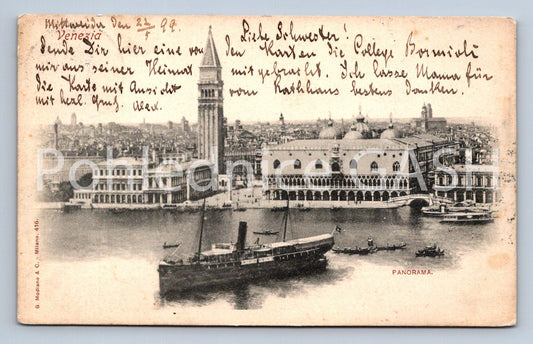 Mittweida den 22/5 99.
Venezia
Liebe Schwester!
Sende Dir hier eine von den Karten die College Bormioli
mir aus seiner Heimat mit gebracht. Ich lasse Mama für
die Karte mit Ansicht vom Rathhaus bestens danken.
mit herzl. Gruß.
PANORAMA.
G. Modiano & C. - Milano. 416.